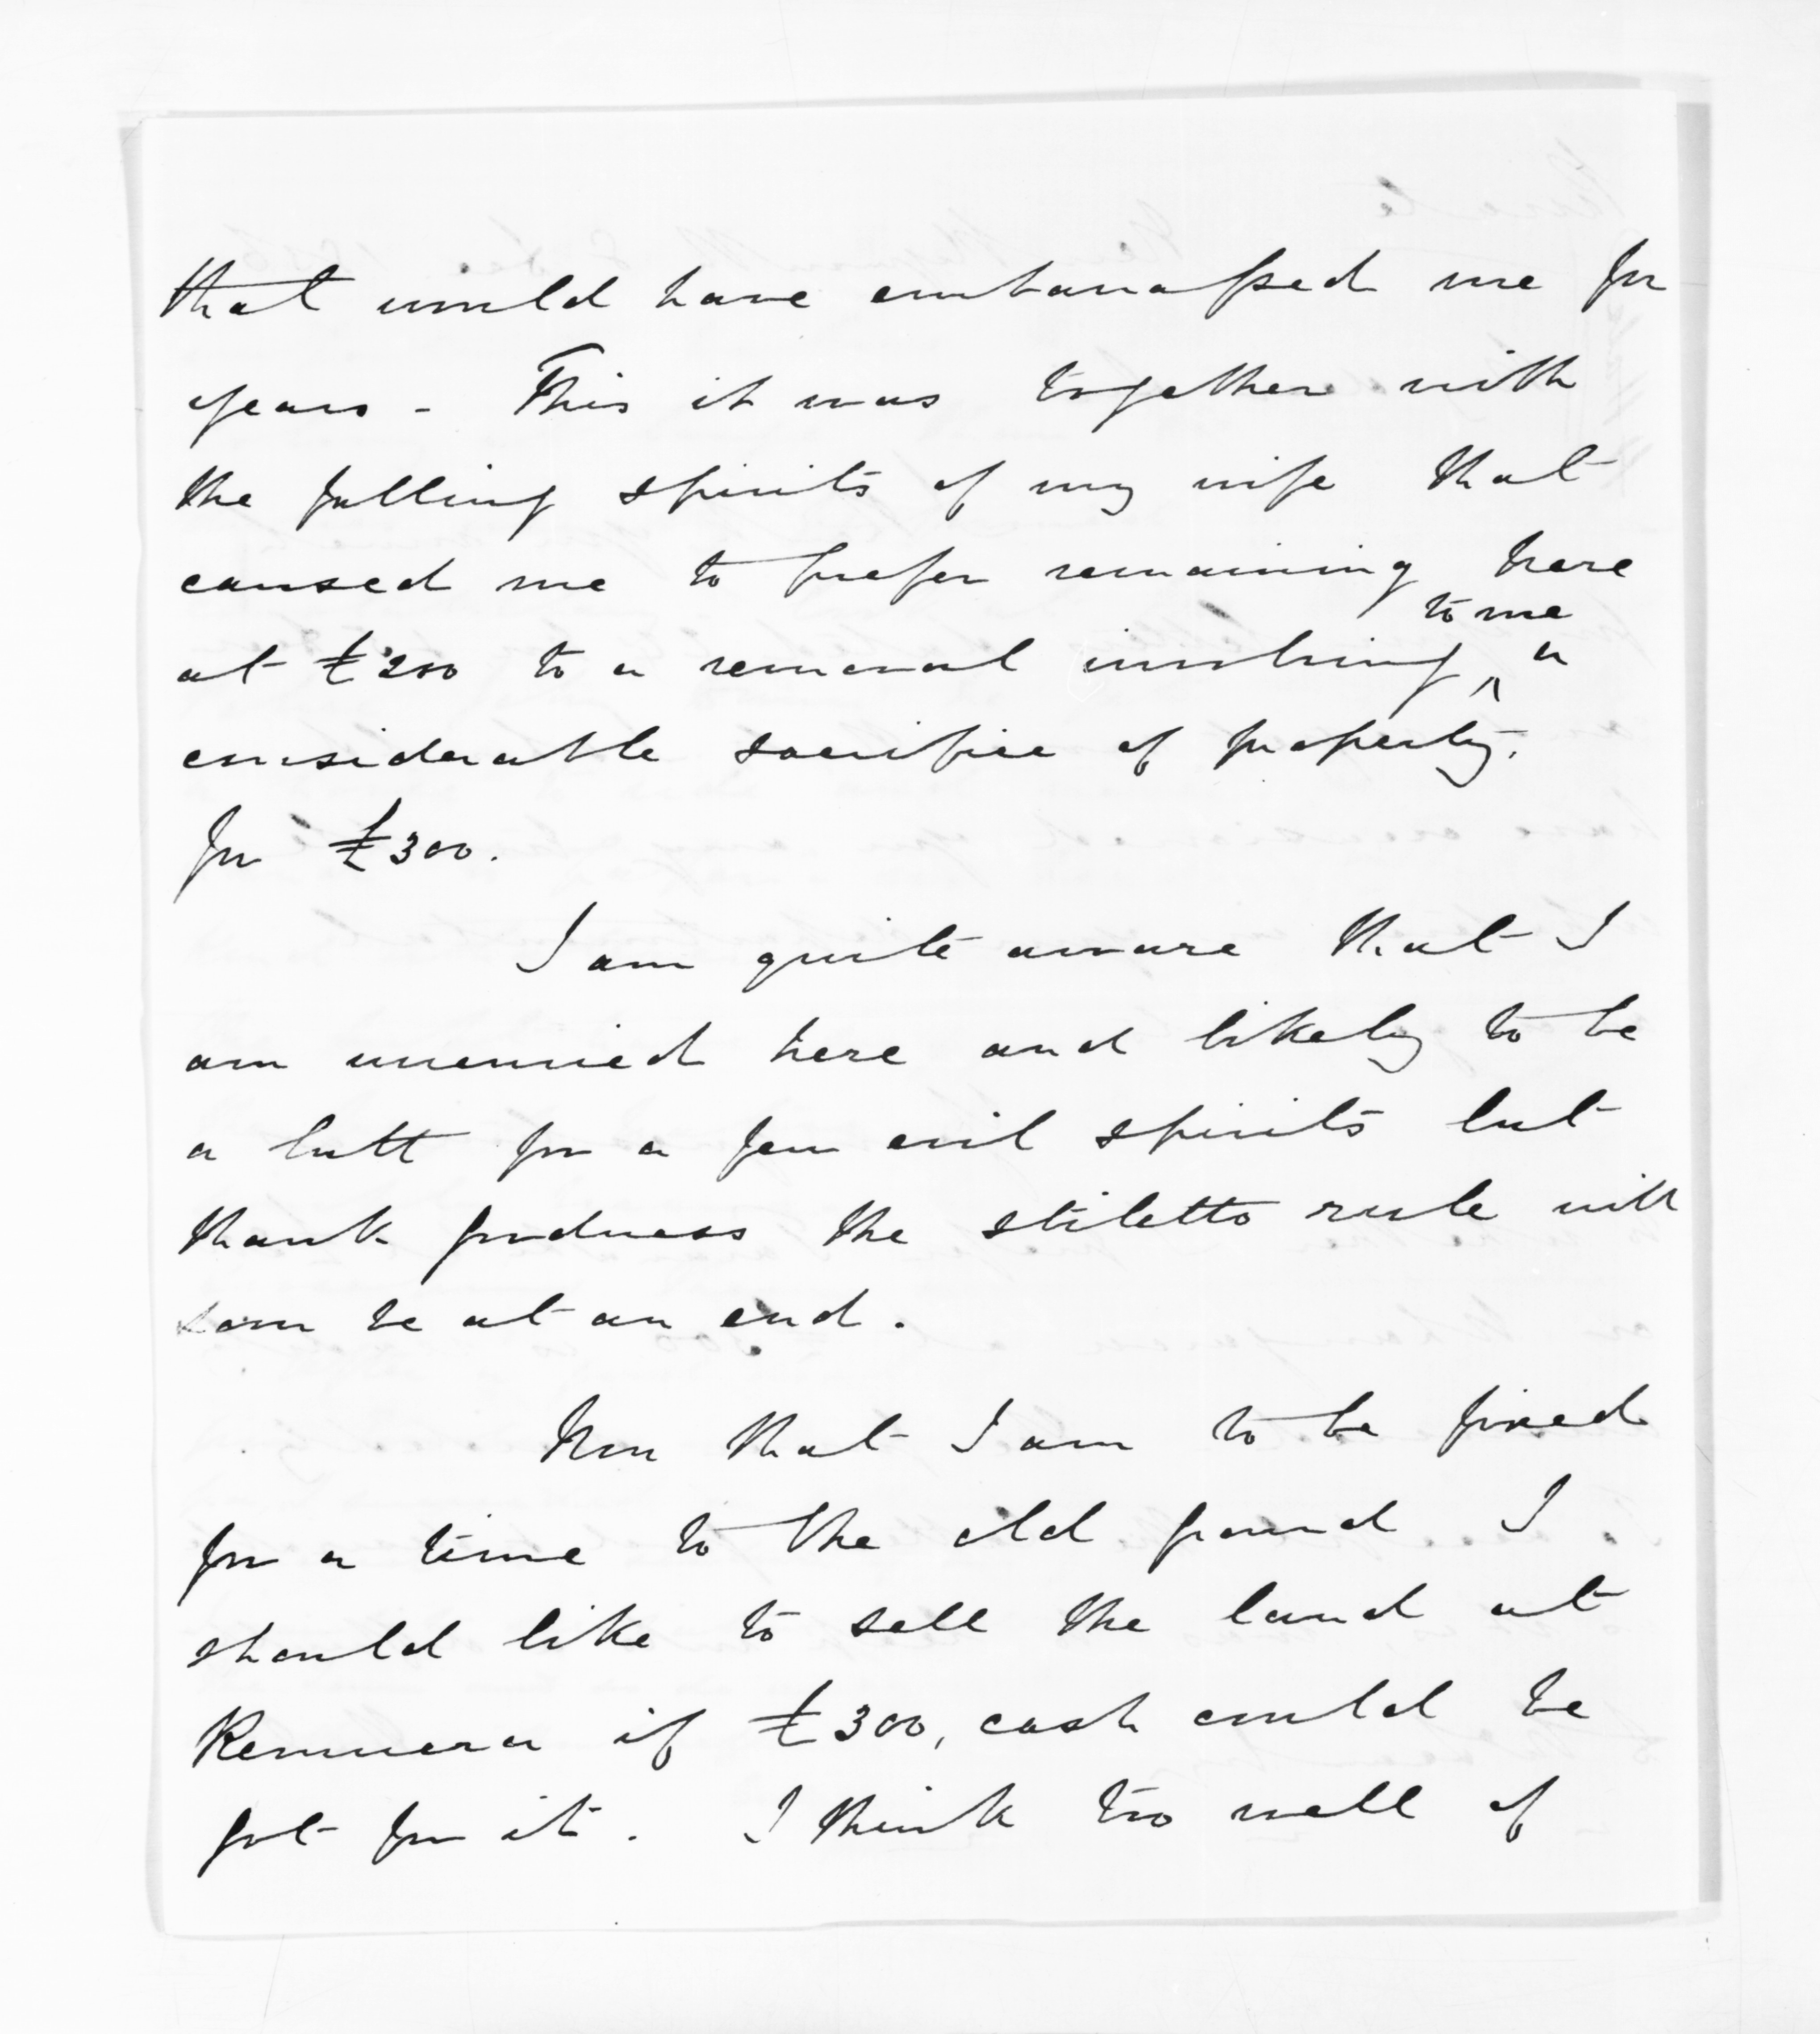 that would have embarrassed me for
years - This it was together with
the falling spirits of my wife that
caused me to prefer remaining here
at £200 to a removal involving ^ to me a
considerable sacrifice of property.
for £300.
I am quite aware that I
am unenvied here and likely to be
a butt for a few evil spirits but
thank goodness the stiletto rule will
soon be at an end.
Now that I am to be fixed
for a time to the old pound I
should like to sell the land at
Remuera if £300, cash could be
got for it. I think too well of